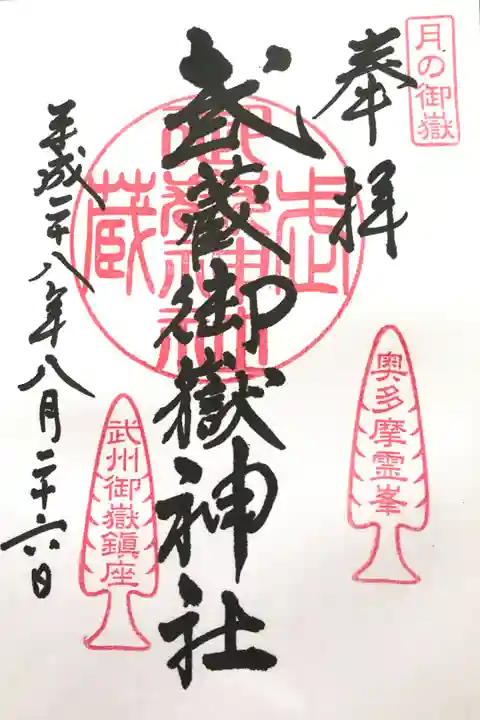 月の御嶽
奉拝
武蔵御嶽神社
武蔵御嶽神社
奥多摩霊峯
武州御嶽鎮座
平成二十八年八月二十六日